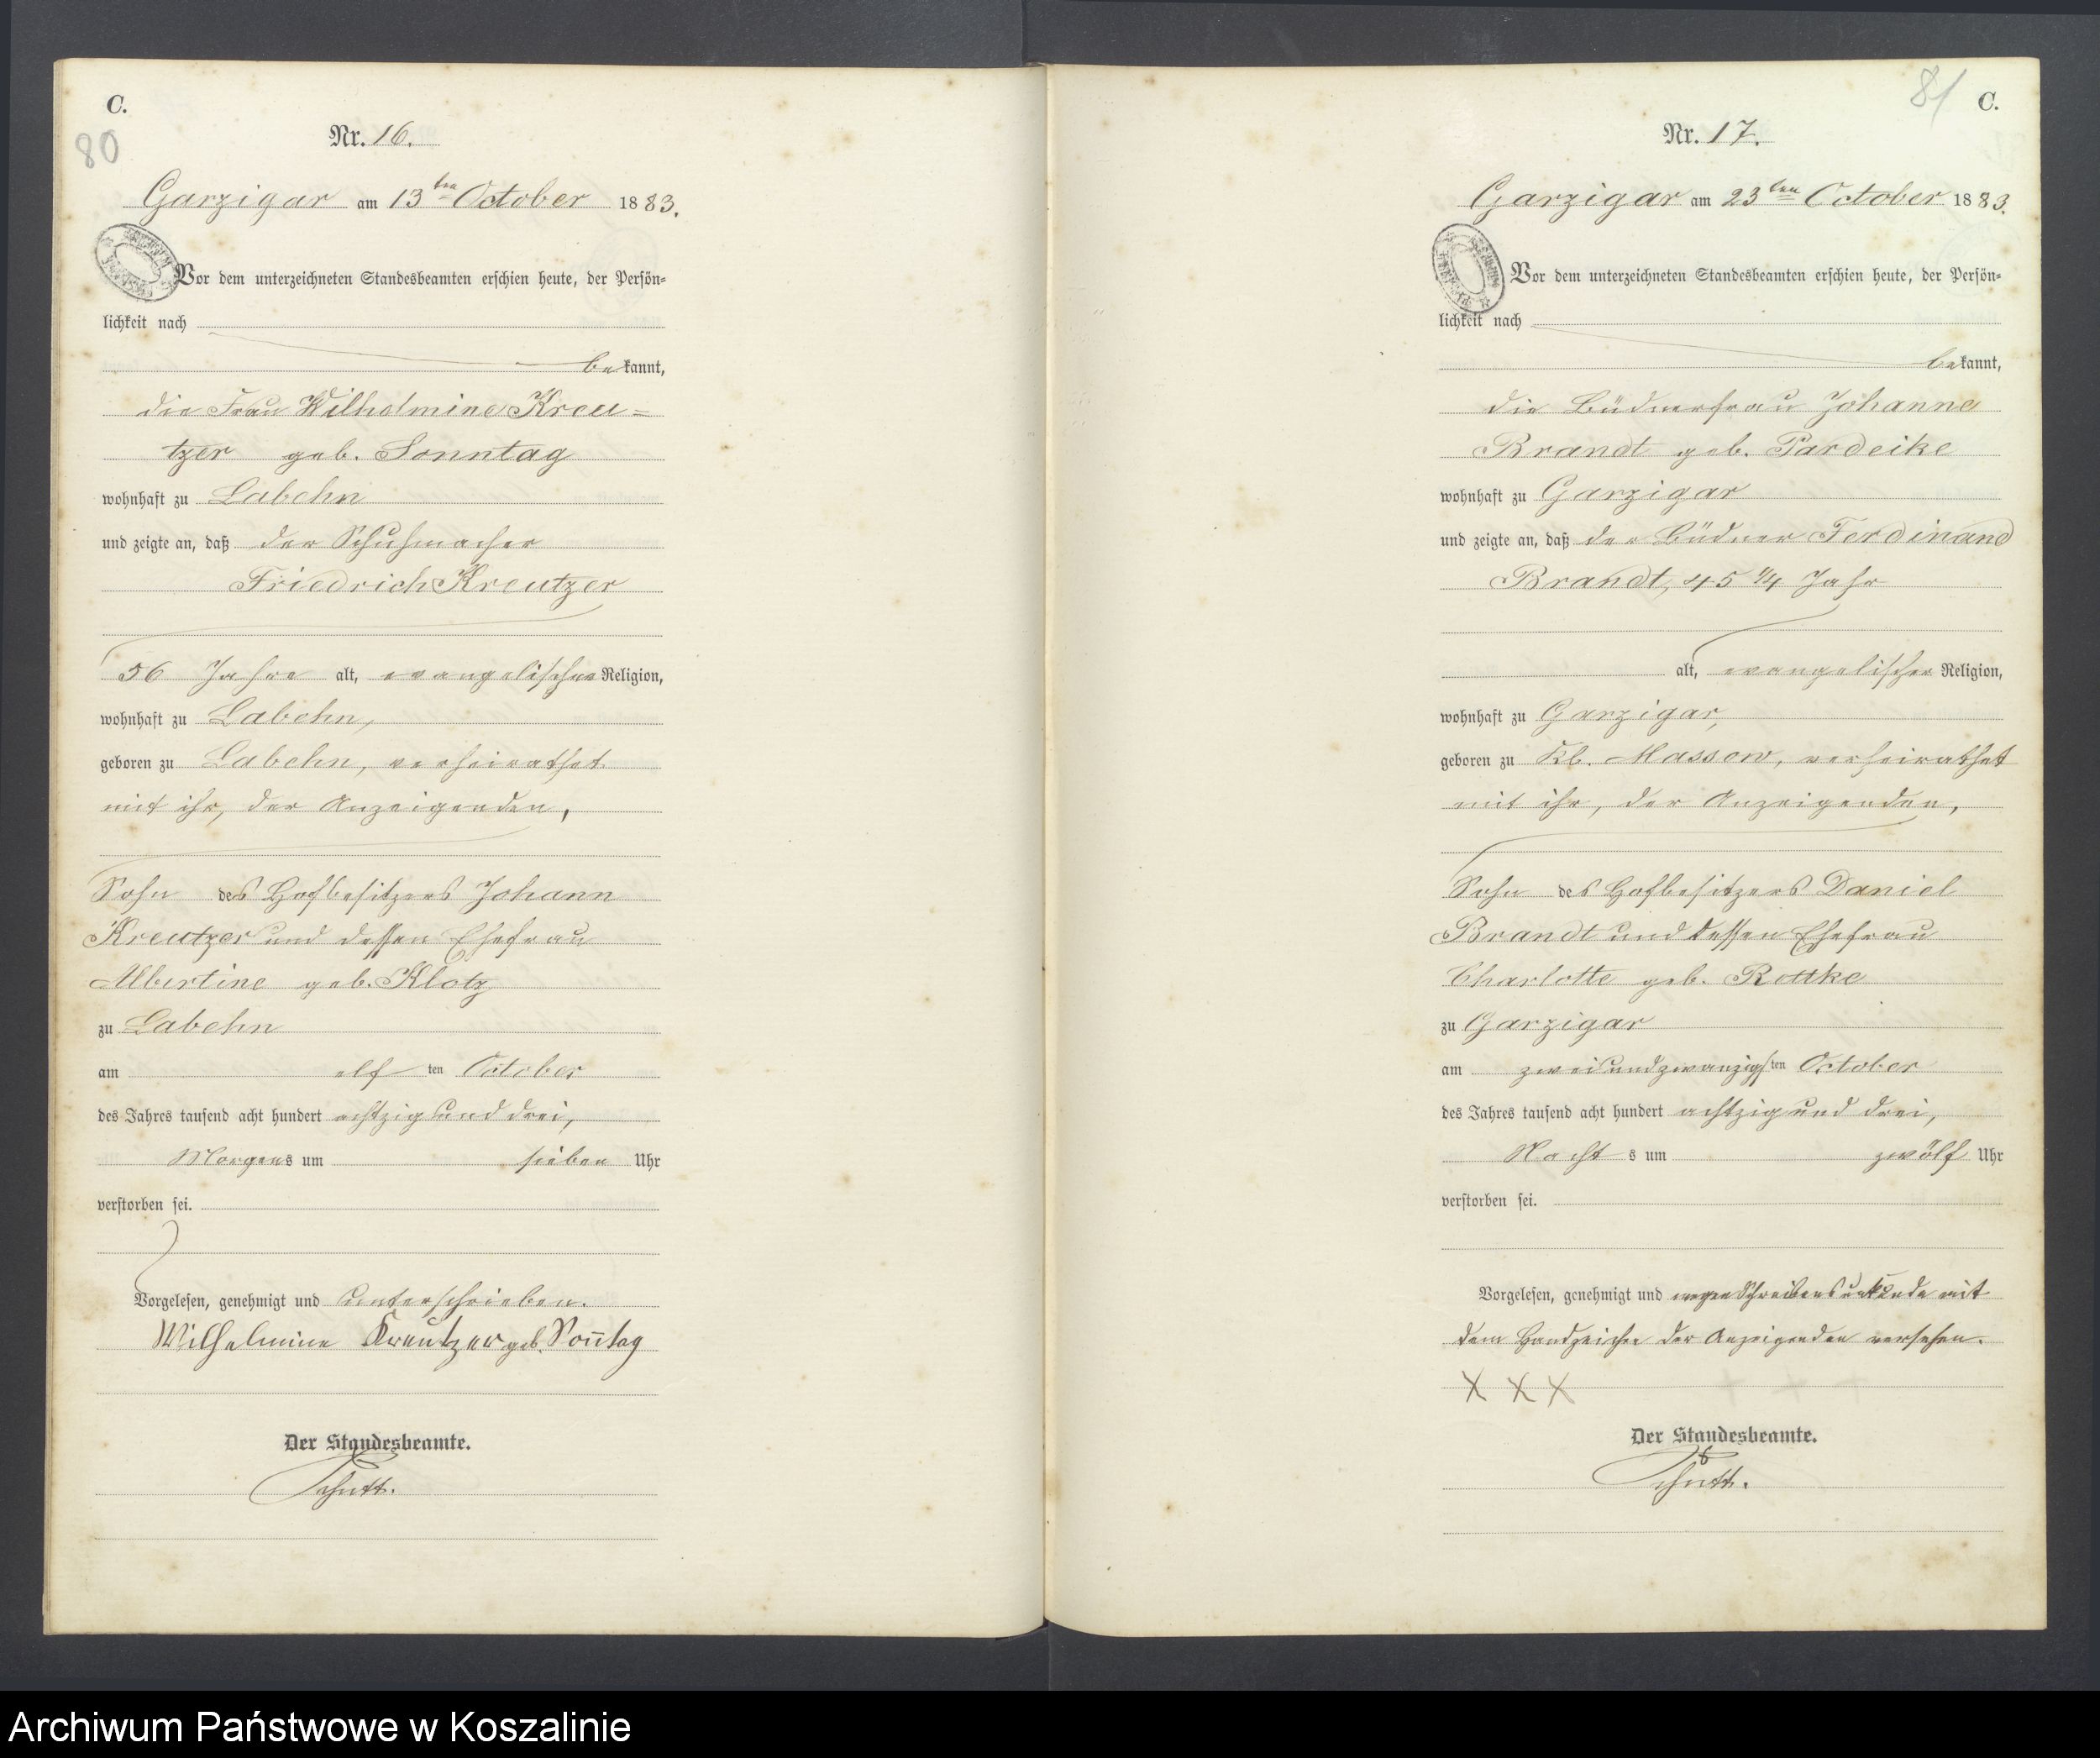 C.
80
Nr. 16.
Garzigar am 13ten October 1883.
Vor dem unterzeichneten Standesbeamten erschien heute, der Persön-
lichkeit nach
bekannt,
die Frau Wilhelmine Kreu-
tzer geb. Sonntag
wohnhaft zu Labehn
und zeigte an, daß der Schuhmacher
Friedrich Kreutzer
56 Jahre alt, evangelischer Religion,
wohnhaft zu Labehn,
geboren zu Labehn, verheirathet
mit ihr, der Anzeigenden,
Sohn des Hofbesitzers Johann
Kreutzer und dessen Ehefrau
Albertine geb. Klotz
zu Labehn
am elften October
des Jahres tausend acht hundert achtzig und drei,
Morgens um sieben Uhr
verstorben sei.
Vorgelesen, genehmigt und unterschrieben.
Wilhelmine Kreutzer geb. Sonntag
Der Standesbeamte.
81 C.
Nr. 17.
Garzigar am 23ten October 1883.
Vor dem unterzeichneten Standesbeamten erschien heute, der Persön-
lichkeit nach
bekannt,
die Büdnerfrau Johanne
Brandt geb. Pardeike
wohnhaft zu Garzigar
und zeigte an, daß der Büdner Ferdinand
Brandt, 45 1/4 Jahr
alt, evangelischer Religion,
wohnhaft zu Garzigar,
geboren zu Kl. Massow, verheirathet
mit ihr, der Anzeigenden,
Sohn des Hofbesitzers Daniel
Brandt und dessen Ehefrau
Charlotte geb.
zu Garzigar
am zweiundzwanzigsten October
des Jahres tausend acht hundert achtzig und drei,
Nachts um zwölf Uhr
verstorben sei.
Vorgelesen, genehmigt und wegen Schreibensunkunde mit
dem Handzeichen der Anzeigenden versehen.
X X X
Der Standesbeamte.
Archiwum Państwowe w Koszalinie